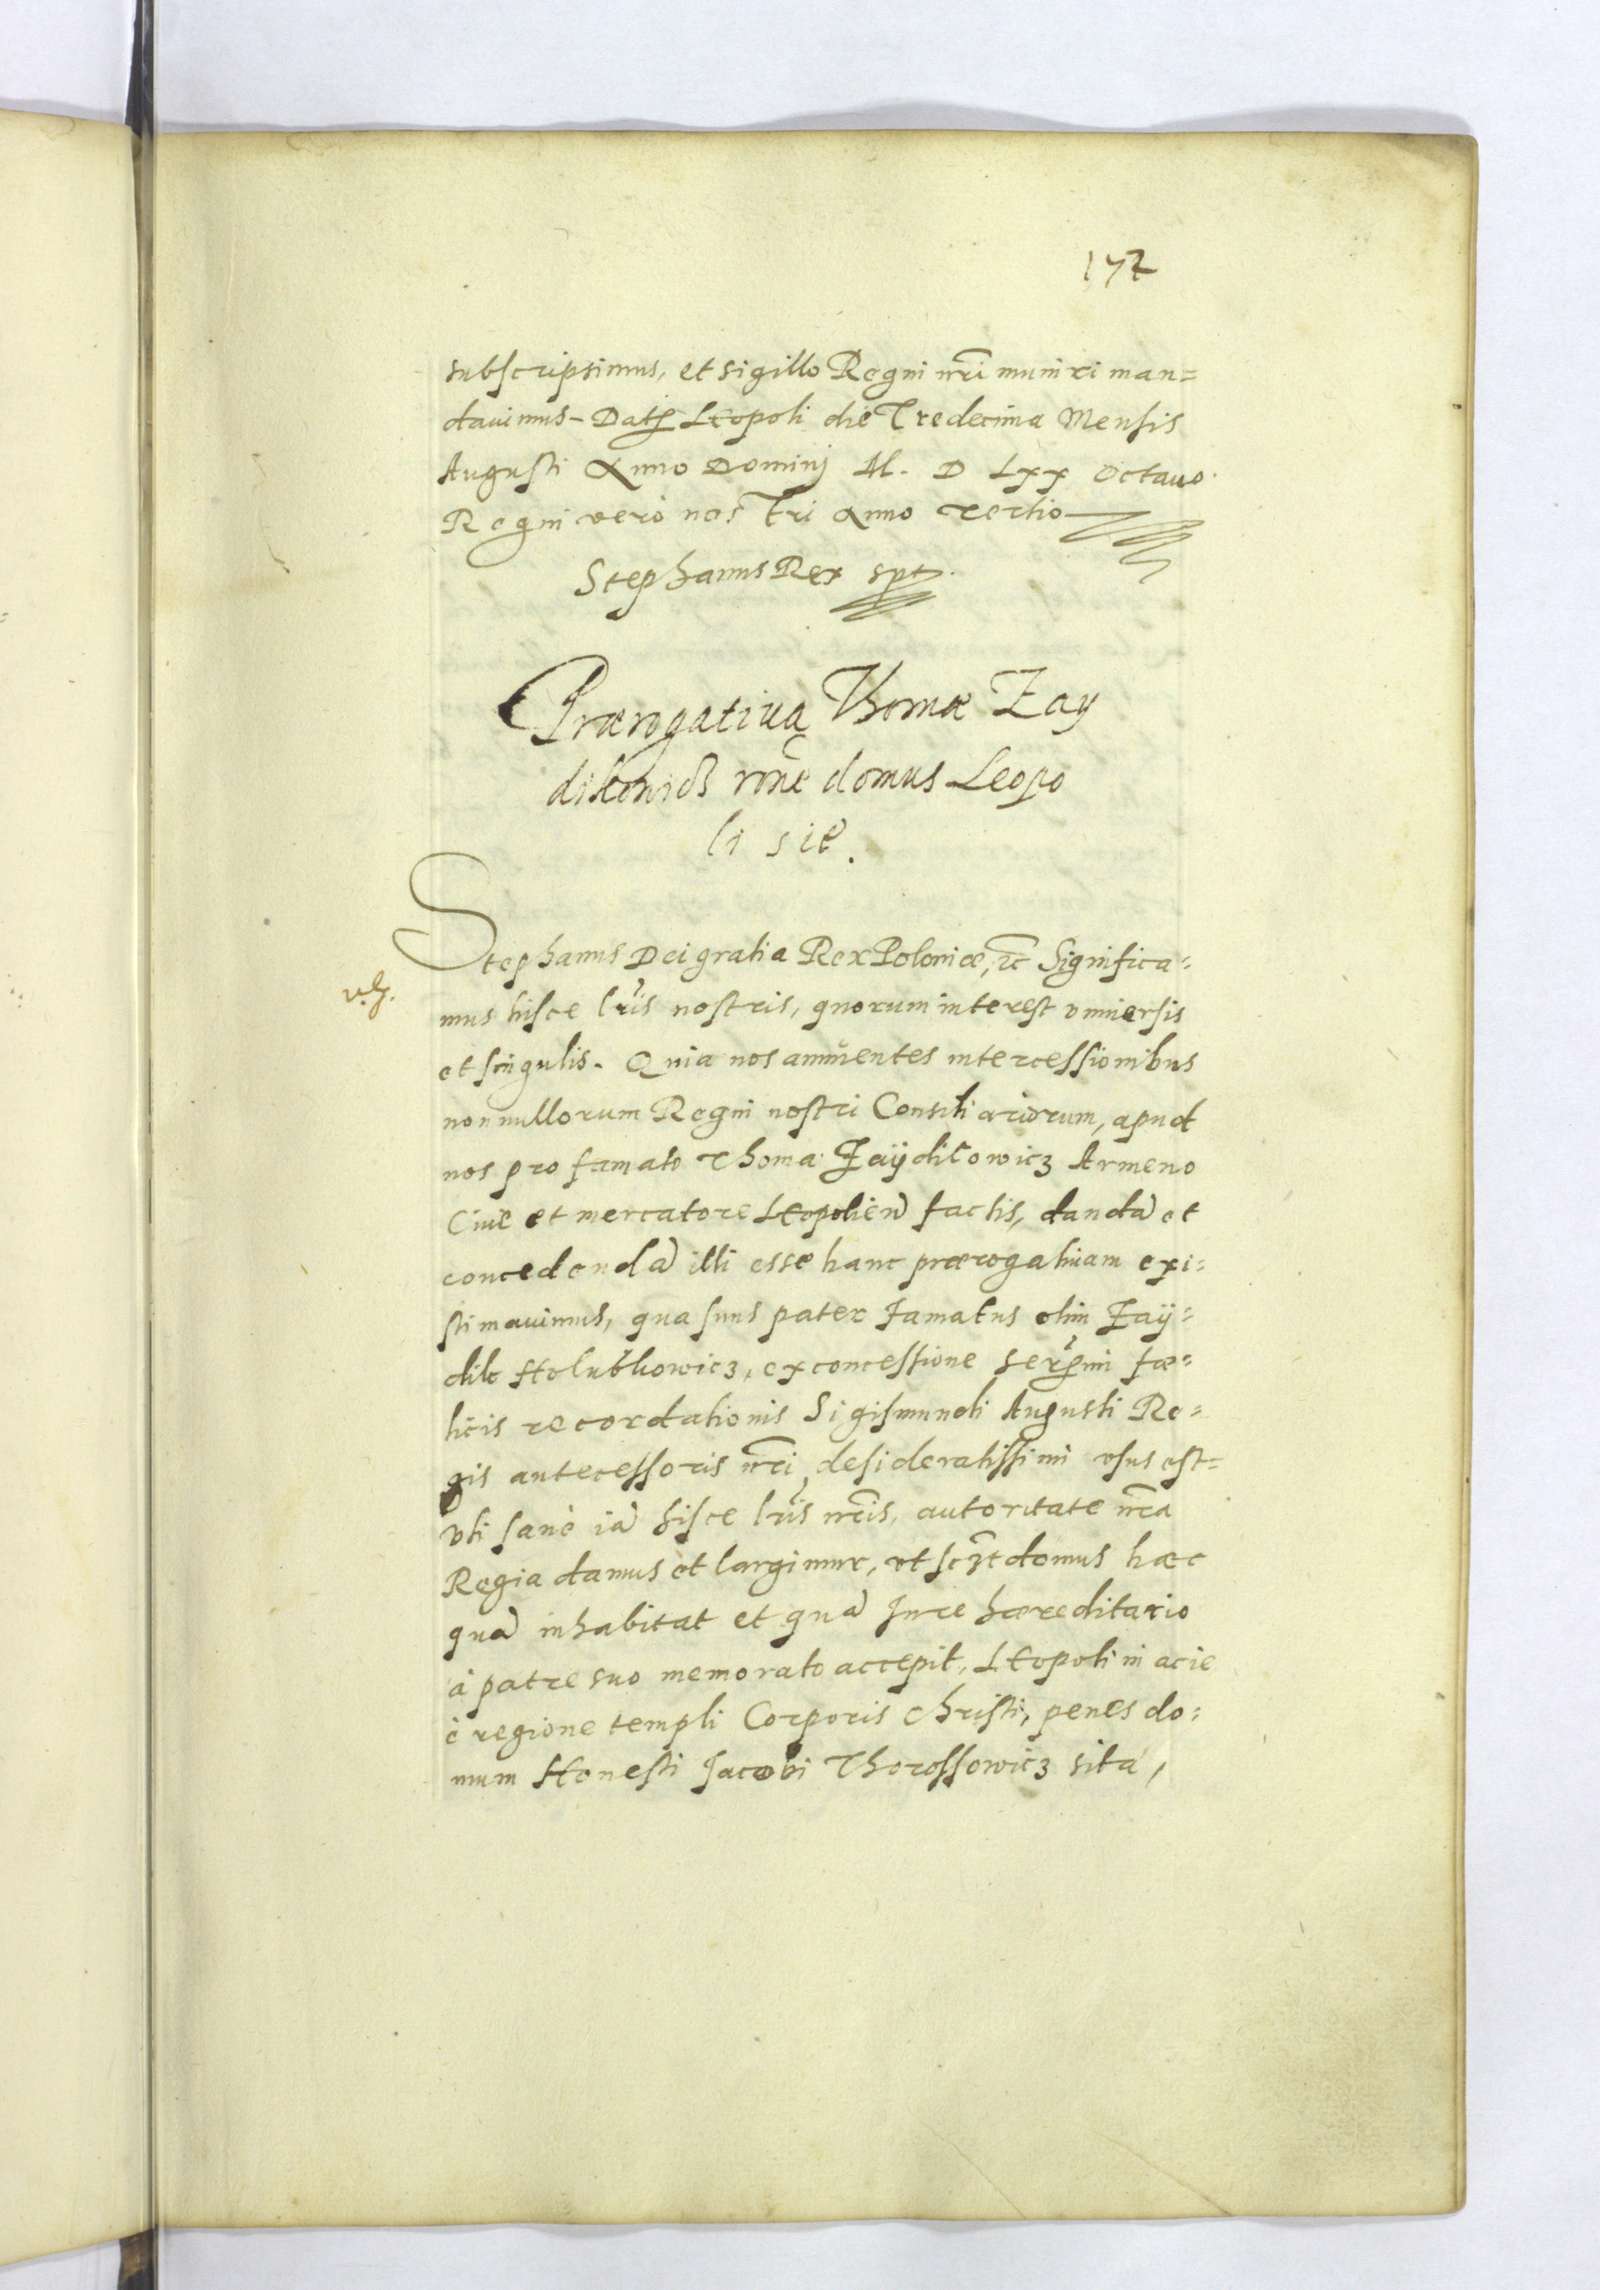 172
subscripsimus, et sigillo Regni nr̃i muniri man=
dauimus – Datũ Leopoli die Tredecima Mensis
Augusti Anno Dominj M. D Lxx Octauo.
Regni verò nostri Anno Tertio
Stephanus Rex spt.
Prærogatiua Thomæ Zay
ditowicz rõne domus Leopo
li sitẽ.
Stephanus Dei gratia Rex Poloniæ, ꝛc Significa=
mus hisce lr̃is nostris, quorum interest vniuersis
et singulis. Quia nos annuentes intercessionibus
nonnullorum Regni nostri Consiliariorum, apud
nos pro famato Thoma Zaÿditowicz Armeno
Ciue et mercatore Leopolieñ factis, dandã et
concedendã illi esse hanc prærogatiuam exi=
stimauimus, qua suus pater famatus olim Zaÿ=
dit Holubkowicz, ex concessione Ser̃mi fæ=
licis recordationis Sigismundi Augusti Re=
gis antecessoris nr̃i desideratissimi vsus est=
vti sanè iã hisce lr̃is nr̃is, autoritate nr̃a
Regia damus et largimur, vt sczt domus hæc
quã inhabitat et quã Jure hæreditario
à patre suo memorato accepit, Leopoli in acie
è regione templi Corporis Christi, penes do=
mum Honesti Jacobi Thorossowicz sita,